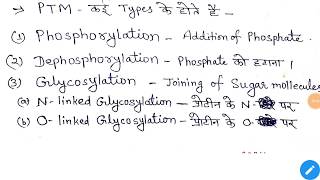 → PTM - कई Types के होते है -
(1) Phosphorylation - Addition of Phosphate.
(2) Dephosphorylation - Phosphate को हटाना।
(3) Glycosylation - Joining of Sugar molecules
(a) N-linked Glycosylation - प्रोटीन के N- पर
(b) O-linked Glycosylation - प्रोटीन के O- पर